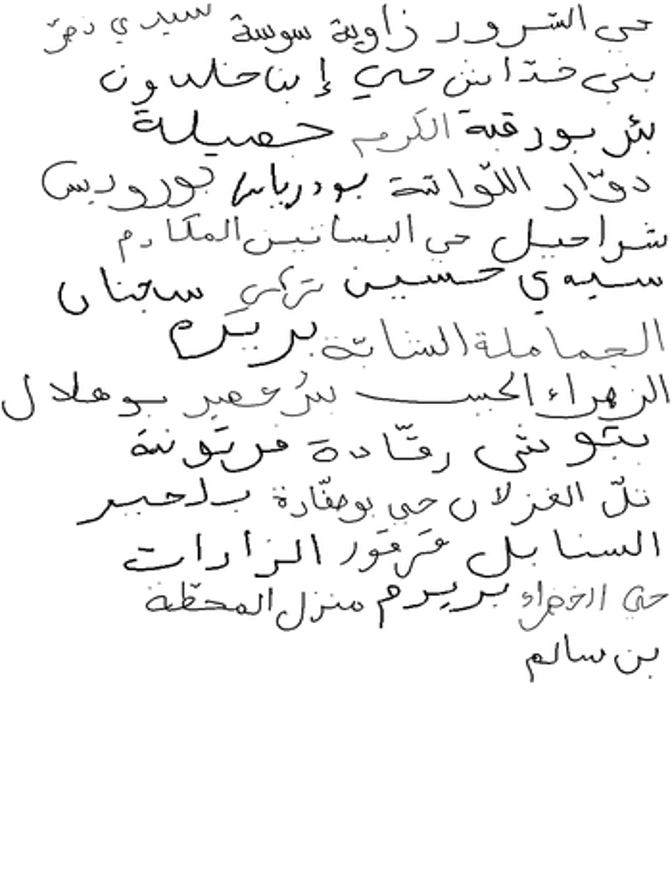 حي السرور زاوية سوسة سيدي نصر
بني خداش حي إبن خلدون
بئر بورقبة الكرم حصيلة
دوّار اللّواتة بودرياس بوروبيس
شراحيل حي البساتين المكارم
سيدي حسين تراس سجنان
الجماملة الشابّة بريرم
الزهراء الحبيب بئر حصير بوهلال
بتّوش رقّادة فرتونة
تلّ الغزلان حي بوصفّارة بلخير
السنابل قرقور الزارات
حي الخضراء بريرم منزل المحطّة
بن سالم